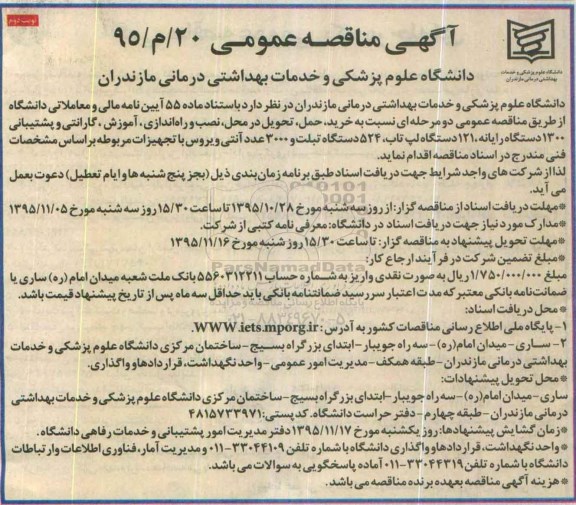 نوبت دوم
آگهی مناقصه عمومی ۲۰/م/۹۵
دانشگاه علوم پزشکی و خدمات بهداشتی درمانی مازندران
دانشگاه علوم پزشکی و خدمات
بهداشتی درمانی مازندران
دانشگاه علوم پزشکی و خدمات بهداشتی درمانی مازندران در نظر دارد باستناد ماده ۵۵ آیین نامه مالی و معاملاتی دانشگاه
از طریق مناقصه عمومی دو مرحله ای نسبت به خرید، حمل، تحویل در محل، نصب و راه اندازی، آموزش، گارانتی و پشتیبانی
۱۳۰۰ دستگاه رایانه، ۱۲۱ دستگاه لپ تاپ، ۵۲۴ دستگاه تبلت و ۳۰۰۰ عدد آنتی ویروس با تجهیزات مربوطه بر اساس مشخصات
فنی مندرج در اسناد مناقصه اقدام نماید.
لذا از شرکت های واجد شرایط جهت دریافت اسناد طبق برنامه زمان بندی ذیل (بجز پنج شنبه ها و ایام تعطیل) دعوت بعمل
می آید.
*مهلت دریافت اسناد از مناقصه گزار: از روز سه شنبه مورخ ۱۳۹۵/۱۰/۲۸ تا ساعت ۱۵/۳۰ روز سه شنبه مورخ ۱۳۹۵/۱۱/۰۵
*مدارک مورد نیاز جهت دریافت اسناد در دانشگاه: معرفی نامه کتبی از شرکت.
*مهلت تحویل پیشنهاد به مناقصه گزار: تا ساعت ۱۵/۳۰ روز شنبه مورخ ۱۳۹۵/۱۱/۱۶
*مبلغ تضمین شرکت در فرآیند ارجاع کار:
مبلغ ۱/۷۵۰/۰۰۰/۰۰۰ ریال به صورت نقدی واریز به شماره حساب ۵۵۶۰۳۱۲۲۱۱ بانک ملت شعبه میدان امام (ره) ساری یا
ضمانت نامه بانکی معتبر که مدت اعتبار سررسید ضمانتنامه بانکی باید حداقل سه ماه پس از تاریخ پیشنهاد قیمت باشد.
*محل دریافت اسناد:
۱- پایگاه ملی اطلاع رسانی مناقصات کشور به آدرس: WWW.iets.mporg.ir
۲- ساری- میدان امام(ره)- سه راه جویبار- ابتدای بزرگراه بسیج- ساختمان مرکزی دانشگاه علوم پزشکی و خدمات
بهداشتی درمانی مازندران- طبقه همکف- مدیریت امور عمومی- واحد نگهداشت، قراردادها و واگذاری.
*محل تحویل پیشنهادات:
ساری- میدان امام(ره)- سه راه جویبار- ابتدای بزرگراه بسیج- ساختمان مرکزی دانشگاه علوم پزشکی و خدمات بهداشتی
درمانی مازندران- طبقه چهارم- دفتر حراست دانشگاه. کدپستی: ۴۸۱۵۷۳۳۹۷۱
*زمان گشایش پیشنهادها: روز یکشنبه مورخ ۱۳۹۵/۱۱/۱۷ دفتر مدیریت امور پشتیبانی و خدمات رفاهی دانشگاه.
*واحد نگهداشت، قراردادها و واگذاری دانشگاه با شماره تلفن ۳۳۰۴۴۱۰۹-۰۱۱ و مدیریت آمار، فناوری اطلاعات و ارتباطات
دانشگاه با شماره تلفن ۳۳۰۴۴۳۱۹-۰۱۱ آماده پاسخگویی به سوالات می باشد.
*هزینه آگهی مناقصه بعهده برنده مناقصه می باشد.
ParsNamadData
۰۲۱-۸۸۳۴۹۶۷۰-۵